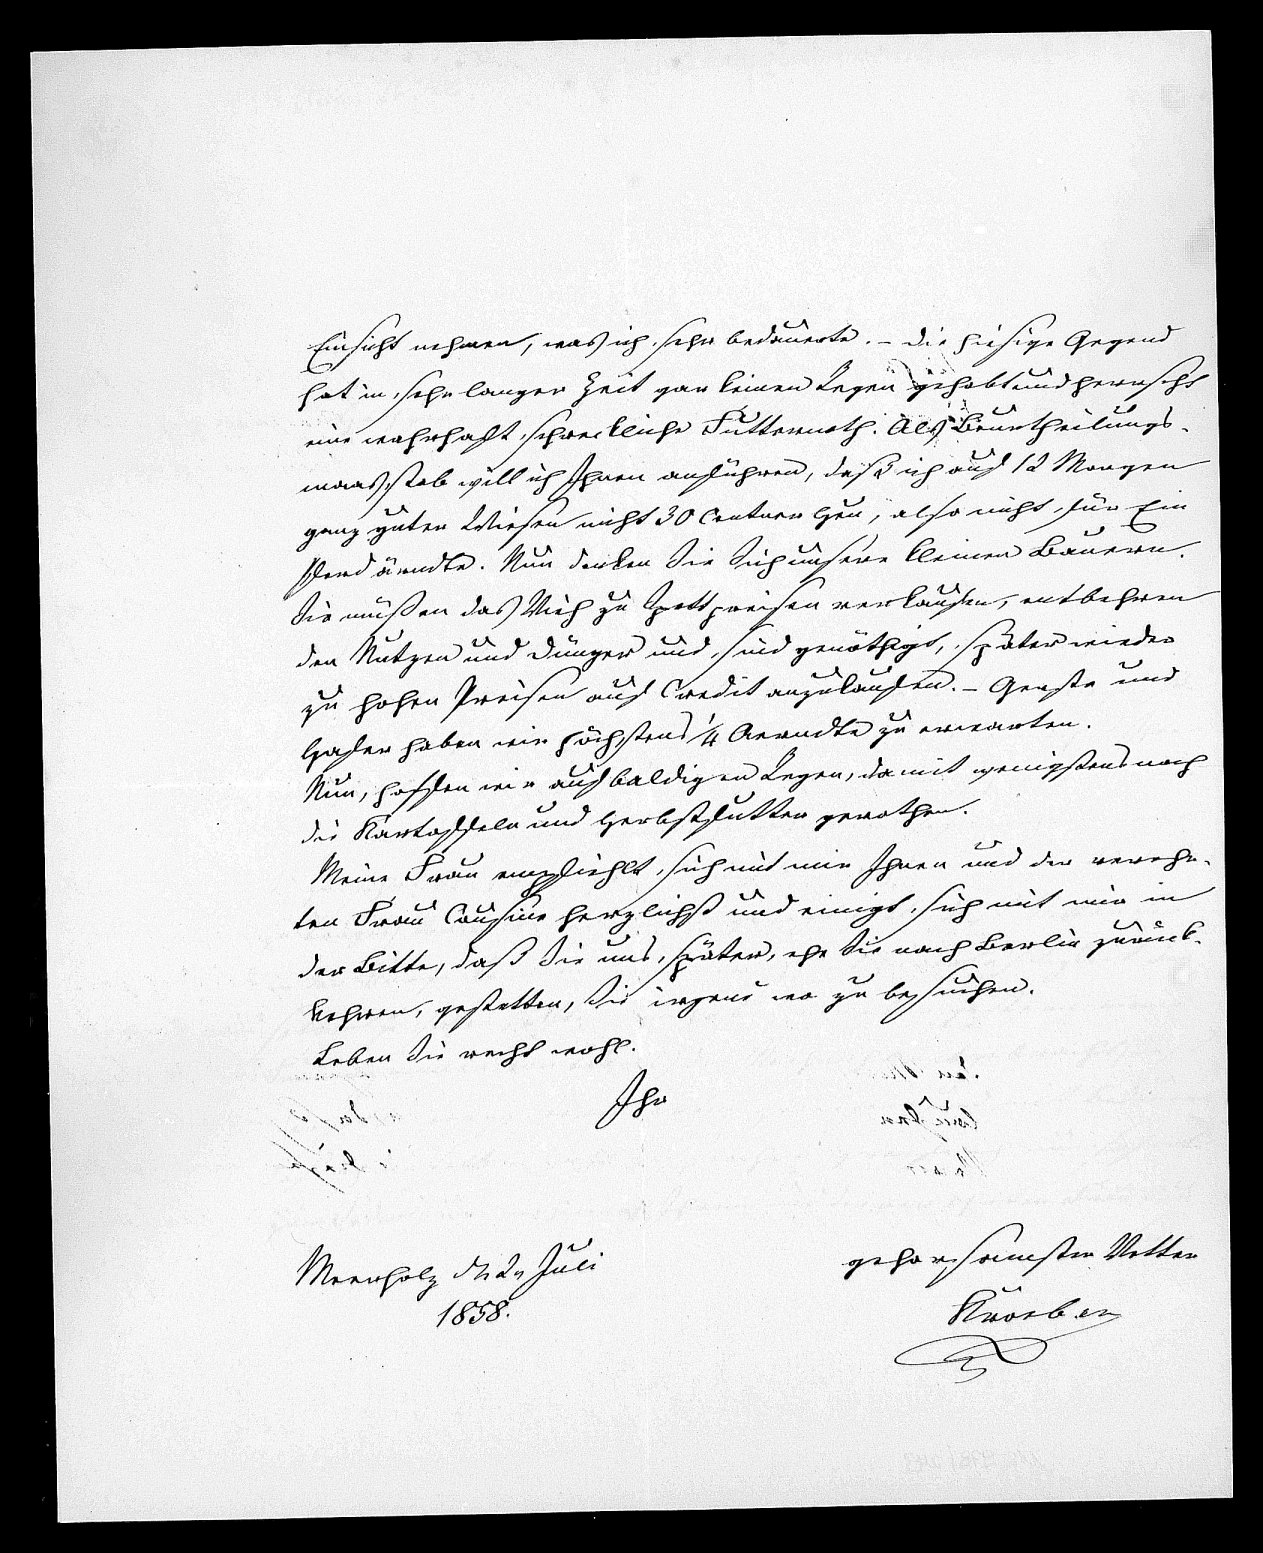 Einsicht nehmen, was ich sehr bedauerte. – Die hiesige Gegend
hat in sehr langer Zeit gar keinen Regen gehabt und herrscht
eine wahrhaft schreckliche Futternoth. Als Beurtheilungs-
maasstab will ich Ihnen anführen, daß ich auf 12 Morgen
ganz guten Wiesen nicht 30 Centner Heu, also nicht für Ein
Pferd ärndte. Nun denken Sie Sich unsere kleinen Bauern.
Sie müßen das Vieh zu Spottpreisen verkaufen, entbehren
den Nutzen und Dünger und sind genöthigt, später wieder
zu hohen Preisen auf Credit anzukaufen. – Gerste und
Hafer haben wir höchstens 1/4 Aerndte zu erwarten.
Nun, hoffen wir auf baldigen Regen, damit wenigstens noch
die Kartoffeln und Herbstfutter gerathen.
Meine Frau empfiehlt sich mit mir Ihnen und der verehr-
ten Frau Cousine herzlichst und einigt sich mit mir in
der Bitte, daß Sie uns später, ehe Sie nach Berlin zurück-
kehren, gestatten, Sie irgend wo zu besuchen.
Leben Sie recht wohl.
Ihr
gehorsamster Vetter
Meerholz d. 2n Juli
1858.
Kroeber